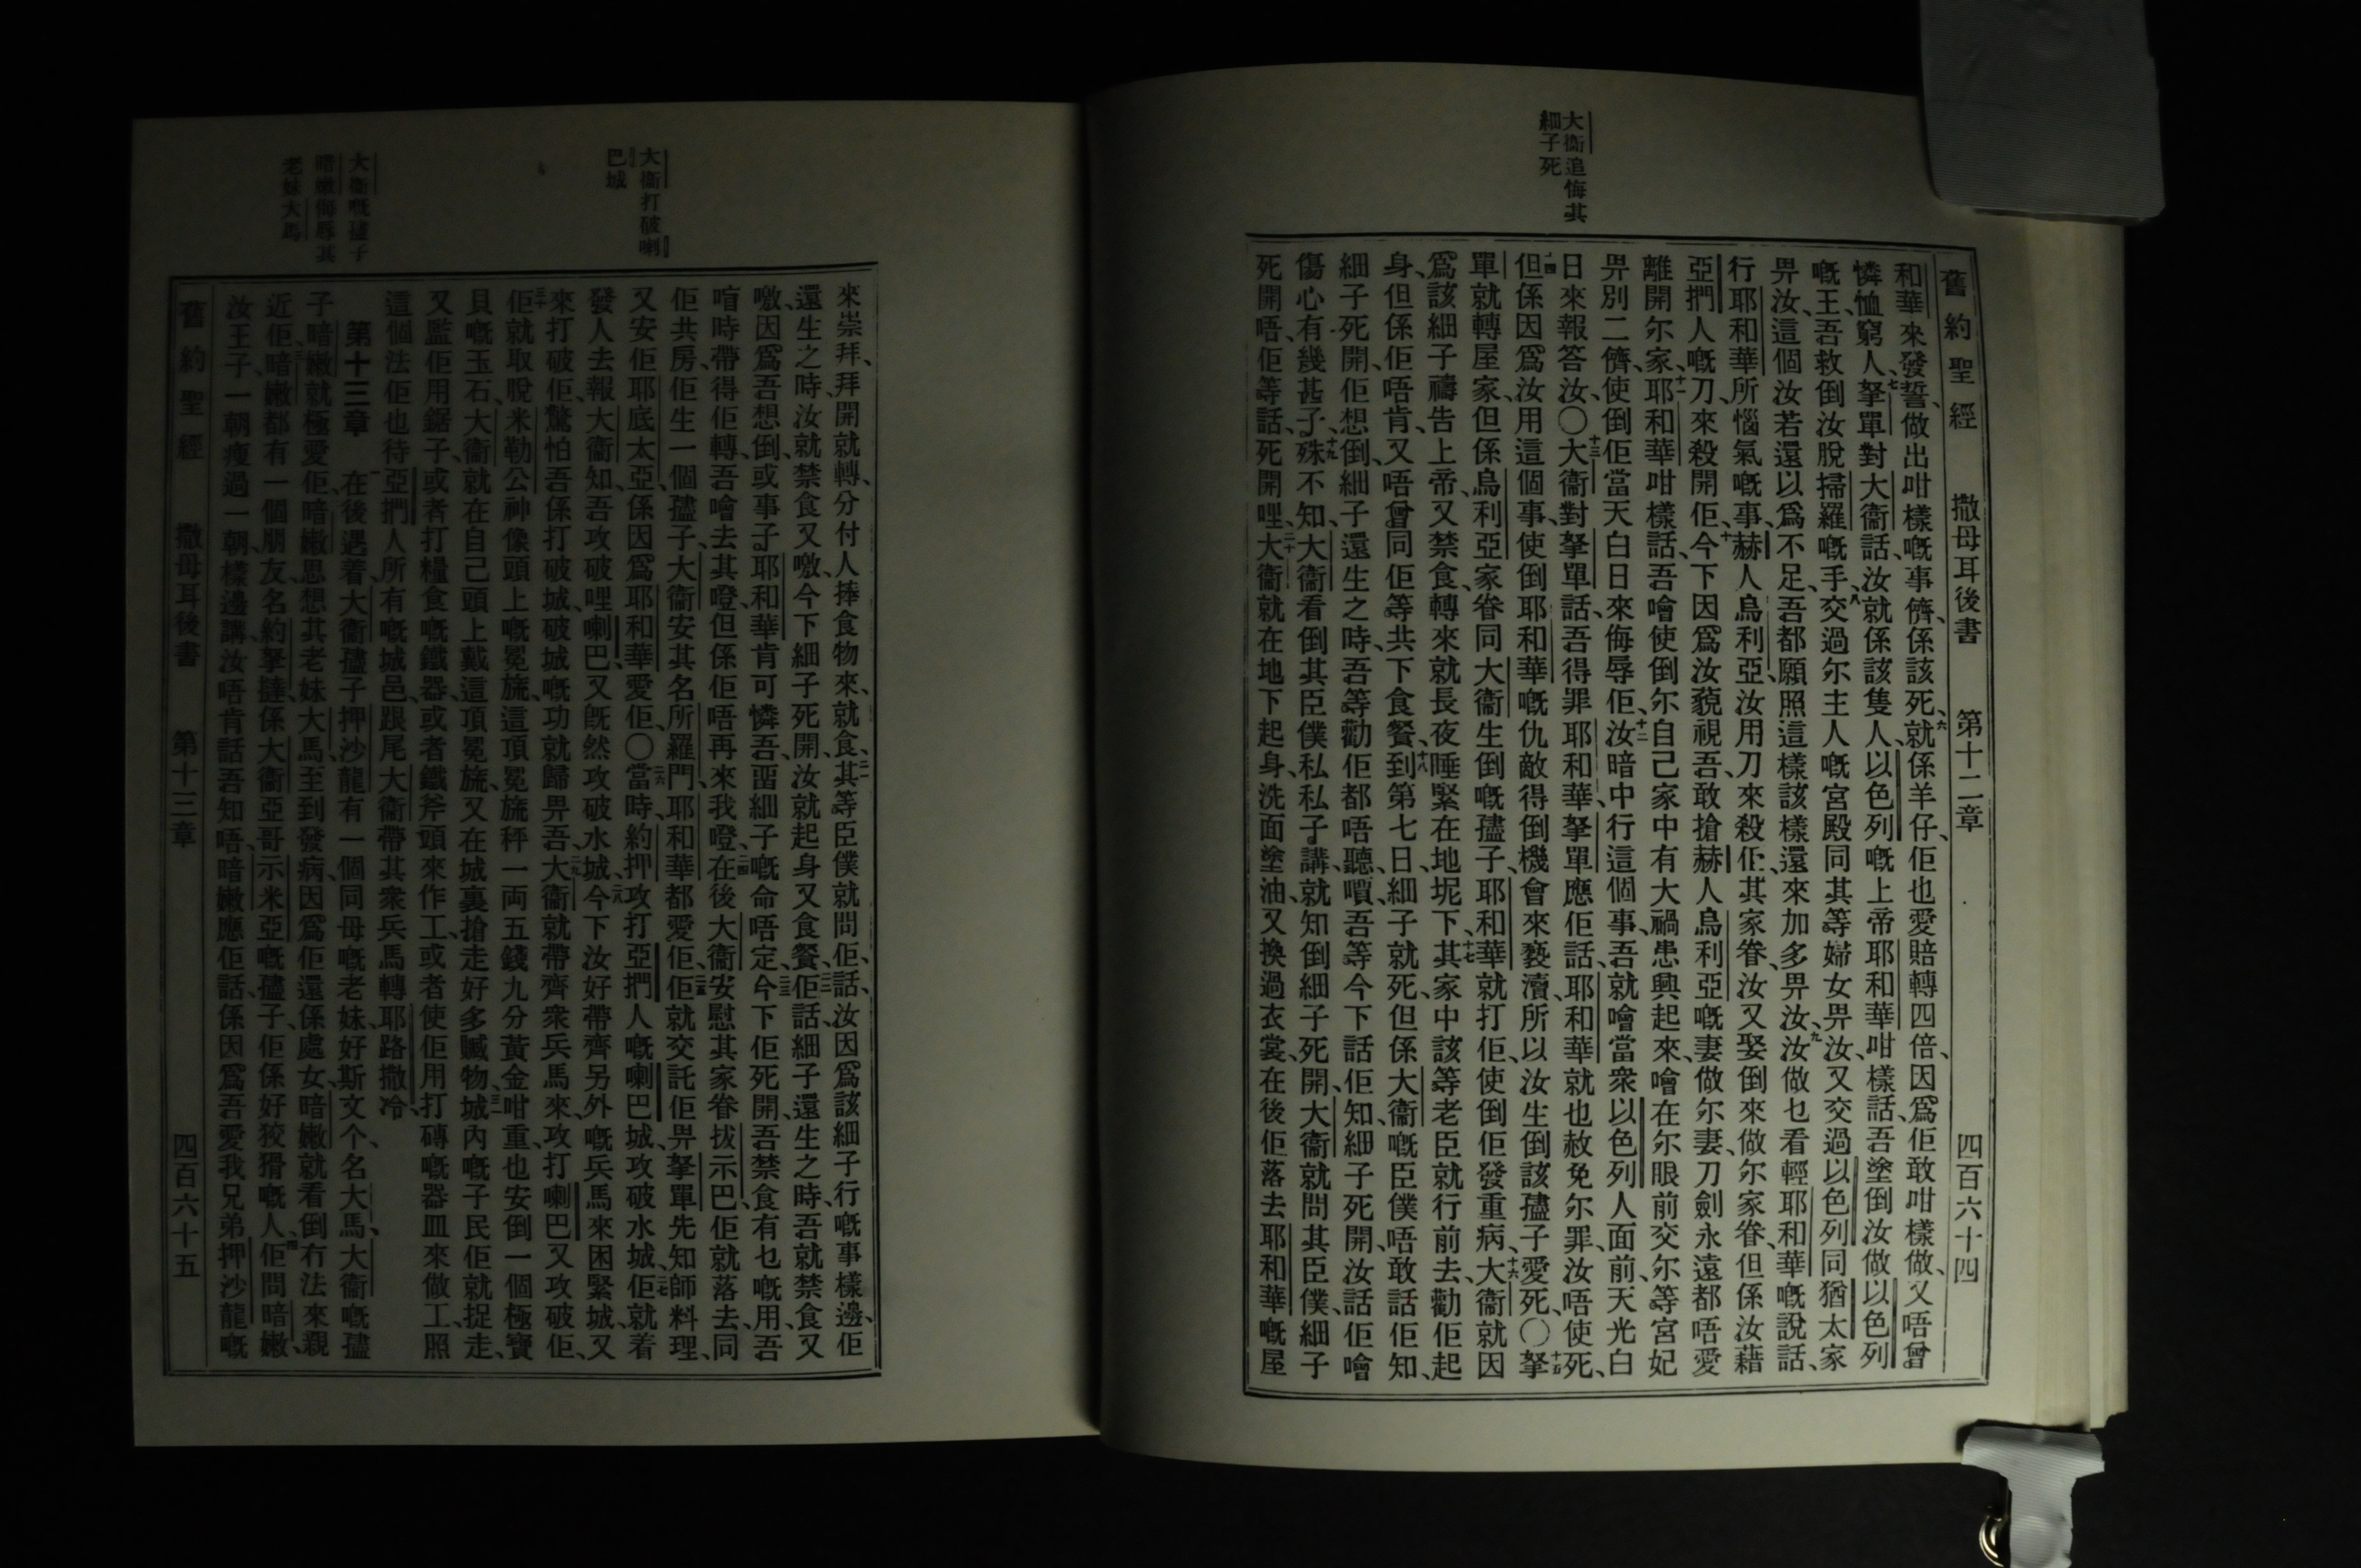 舊約聖經 撒母耳後書 第十二章 四百六十四
大衞追悔其
細子死
和華來發誓、做出咁樣嘅事儕、係該死、六就係羊仔、佢也愛賠轉四倍、因爲佢敢咁樣做、又唔曾
憐恤窮人、七拏單對大衞話、汝就係該隻人、以色列嘅上帝耶和華咁樣話、吾塗倒汝做以色列
嘅王、吾救倒汝脫掃羅嘅手、八交過尔主人嘅宮殿同其等婦女畀汝、又交過以色列同猶太家
畀汝、這個汝若還以爲不足、吾都願照這樣該樣還來加多畀汝、九汝做乜看輕耶和華嘅說話、
行耶和華所惱氣嘅事、赫人烏利亞、汝用刀來殺佢、其家眷、汝又娶倒來做尔家眷、但係汝藉
亞捫人嘅刀、來殺開佢、十今下因爲汝藐視吾、敢搶赫人烏利亞嘅妻做尔妻、刀劍永遠都唔愛
離開尔家、十一耶和華咁樣話、吾噲使倒尔自己家中有大禍患興起來、噲在尔眼前交尔等宮妃
畀別二儕、使倒佢當天白日來侮辱佢、十二汝暗中行這個事、吾就噲當衆以色列人面前、天光白
日來報答汝、〇十三大衞對拏單話、吾得罪耶和華、拏單應佢話、耶和華就也赦免尔罪、汝唔使死、
十四但係因爲汝用這個事、使倒耶和華嘅仇敵得倒機會來褻瀆、所以汝生倒該孻子、愛死、〇十五拏
單就轉屋家、但係烏利亞家眷同大衞生倒嘅孻子、耶和華就打佢、使倒佢發重病、十六大衞就因
爲該細子禱告上帝、又禁食、轉來就長夜睡緊在地坭下、十七其家中該等老臣就行前去、勸佢起
身、但係佢唔肯、又唔曾同佢等共下食餐、十八到第七日、細子就死、但係大衞嘅臣僕唔敢話佢知、
細子死開、佢想倒、細子還生之時、吾等勸佢都唔聽、嘪吾等今下話佢知、細子死開、汝話佢噲
傷心有幾甚子、十九殊不知、大衞看倒其臣僕私私子講、就知倒細子死開、大衞就問其臣僕、細子
死開唔、佢等話、死開哩、二十大衞就在地下起身、洗面塗油、又換過衣裳、在後佢落去耶和華嘅屋
大衞打破喇
巴城
大衞嘅孻子
暗嫩侮辱其
老妹大馬
來崇拜、拜開就轉、分付人捧食物來、就食、二一其等臣僕就問佢、話、汝因爲該細子行嘅事樣邊、佢
還生之時、汝就禁食又噭、今下細子死開、汝就起身又食餐、二二佢話、細子還生之時、吾就禁食又
噭、因爲吾想倒、或事子、耶和華肯可憐吾、畱細子嘅命唔定、二三今下佢死開、吾禁食有乜嘅用、吾
喑時帶得佢轉、吾噲去其嶝、但係佢唔再來我嶝、二四在後大衞安慰其家眷拔示巴、佢就落去、同
佢共房、佢生一個孻子、大衞安其名所羅門、耶和華都愛佢、二五佢就交託佢畀拏單先知師料理、
又安佢耶底太亞、係因爲耶和華愛佢、〇二六當時、約押攻打亞捫人嘅喇巴城、攻破水城、二七佢就着
發人去報大衞知、吾攻破哩喇巴、又旣然攻破水城、二八今下汝好帶齊另外嘅兵馬來困緊城、又
來打破佢、驚怕吾係打破城、破城嘅功就歸畀吾、二九大衞就帶齊衆兵馬來、攻打喇巴、又攻破佢、
三十佢就取脫米勒公神像頭上嘅冕旒、這項冕旒秤一両五錢九分黃金咁重、也安倒一個極寶
貝嘅玉石、大衞就在自己頭上戴這項冕旒、又在城裏搶走好多贓物、三一城內嘅子民佢就捉走、
又監佢用鋸子、或者打糧食嘅鐵器、或者鐵斧頭來作工、或者使佢用打磚嘅器皿來做工、照
這個法佢也待亞捫人所有嘅城邑、跟尾大衞帶其衆兵馬轉耶路撒冷、
第十三章 一在後遇着、大衞孻子押沙龍有一個同母嘅老妹、好斯文个、名大馬、大衞嘅孻
子暗嫩就極愛佢、暗嫩思想其老妹大馬、至到發病、因爲佢還係處女、暗嫩就看倒冇法來親
近佢、三暗嫩都有一個朋友、名約拏撻、係大衞亞哥示米亞嘅孻子、佢係好狡猾嘅人、四佢問暗嫩、
汝王子、一朝瘦過一朝、樣邊講、汝唔肯話吾知唔、暗嫩應佢話、係因爲吾愛我兄弟押沙龍嘅
舊約聖經 撒母耳後書 第十三章 四百六十五